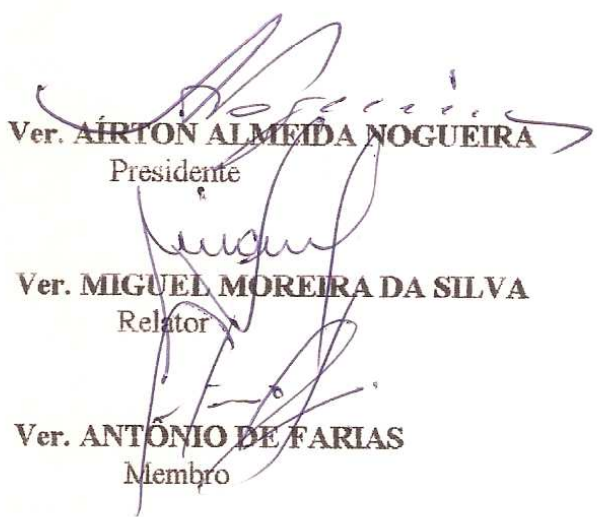 Nogueira
Ver. AÍRTON ALMEIDA NOGUEIRA
Presidente
Miguel
Ver. MIGUEL MOREIRA DA SILVA
Relator
Ver. ANTÔNIO DE FARIAS
Membro